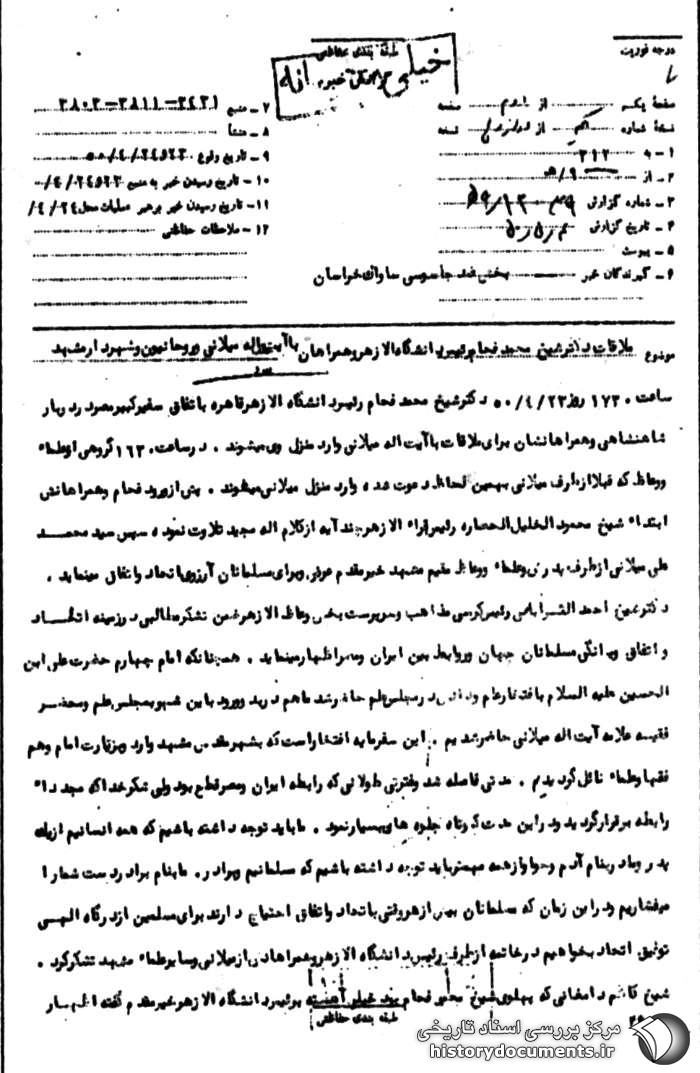 درجه فوریت
طبقه بندی حفاظتی
خیلی محرمانه
صفحه یکم از صفحه
نسخه شماره از نسخه
۱ - به ۳۱۲
۲ - از ۹/ه
۳ - شماره گزارش
۴ - تاریخ گزارش
۵ - پیوست
۶ - گیرندگان خبر بخش ضد جاسوسی ساواک خراسان
۷ - منبع ۲۴۳۱-۳۸۱۱-۳۸۰۲
۸ - منشأ
۹ - تاریخ وقوع ۲۳و۵۰/۴/۲۴
۱۰ - تاریخ رسیدن خبر به منبع ۲۳و۲۴/۴/
۱۱ - تاریخ رسیدن خبر برهبر عملیات محل ۲۴/۴/
۱۲ - ملاحظات حفاظتی
موضوع ملاقات دکتر شیخ محمد فحام رئیس دانشگاه الازهر و همراهان با آیت اله میلانی و روحانیون و شهردار مشهد
ساعت ۱۷۳۰ روز ۵۰/۴/۲۳ دکتر شیخ محمد فحام رئیس دانشگاه الازهر قاهره باتفاق سفیر کبیر مصر در دربار
شاهنشاهی و همراهانشان برای ملاقات با آیت اله میلانی وارد منزل وی میشوند . در ساعت ۱۶۳۰ گروهی از وعاظ
که قبلا از طرف میلانی بهمین لحاظ دعوت شده وارد منزل میلانی میشوند . پس از ورود فحام و همراهانش
ابتداء شیخ محمود الخلیل الحصاره رئیس قراء الازهر چند آیه از کلام اله مجید تلاوت نموده سپس سید محمد
علی میلانی از طرف پدرش وعلماء و وعاظ مقیم مشهد خیر مقدم عرض و برای مسلمانان آرزوی اتحاد و اتفاق مینماید .
دکتر شیخ احمد رئیس کرسی مذاهب و سرپرست بخش وعاظ الازهر ضمن تشکر مطالبی در زمینه اتحاد
و اتفاق و یگانگی مسلمانان جهان و روابط بین ایران و مصر اظهار مینماید . همچنانکه امام چهارم حضرت علی ابن
الحسین علیه السلام با افتخار عام و در مجلس علم حاضر شد ما هم در بدو ورود باین شهر بمجلس علم و محضر
فقیه علامه آیت اله میلانی حاضر شدیم . این سفر مایه افتخار است که بشهر مقدس مشهد وارد و بزیارت امام و هم
فقها و علماء نائل گردیدیم . مدتی فاصله شد و فترتی طولانی که رابطه ایران و مصر قطع بود ولی شکر خدا که مجدداً
رابطه برقرار گردید و در این مدت کوتاه جلوه های بسیار نمود . ما باید توجه داشته باشیم که همه انسانیم از یک
پدر و مادر بنام آدم و حوا و از همه مهمتر باید توجه داشته باشیم که مسلمانیم و برادر . ما بنام برادر دست شما را
میفشاریم و در این زمان که مسلمانان بیش از هر وقتی باتحاد و اتفاق احتیاج دارند برای مسلمین از درگاه الهی
توفیق اتحاد بخواهیم در خاتمه از طرف رئیس دانشگاه الازهر و همراهانش از میلانی و سایر علماء مشهد تشکر کرد .
شیخ کاظم دامغانی که پهلوی شیخ محمد فحام بود خیلی آهسته برئیس دانشگاه الازهر خیر مقدم گفته اظهار
طبقه بندی حفاظتی
مرکز بررسی اسناد تاریخی
historydocuments.ir